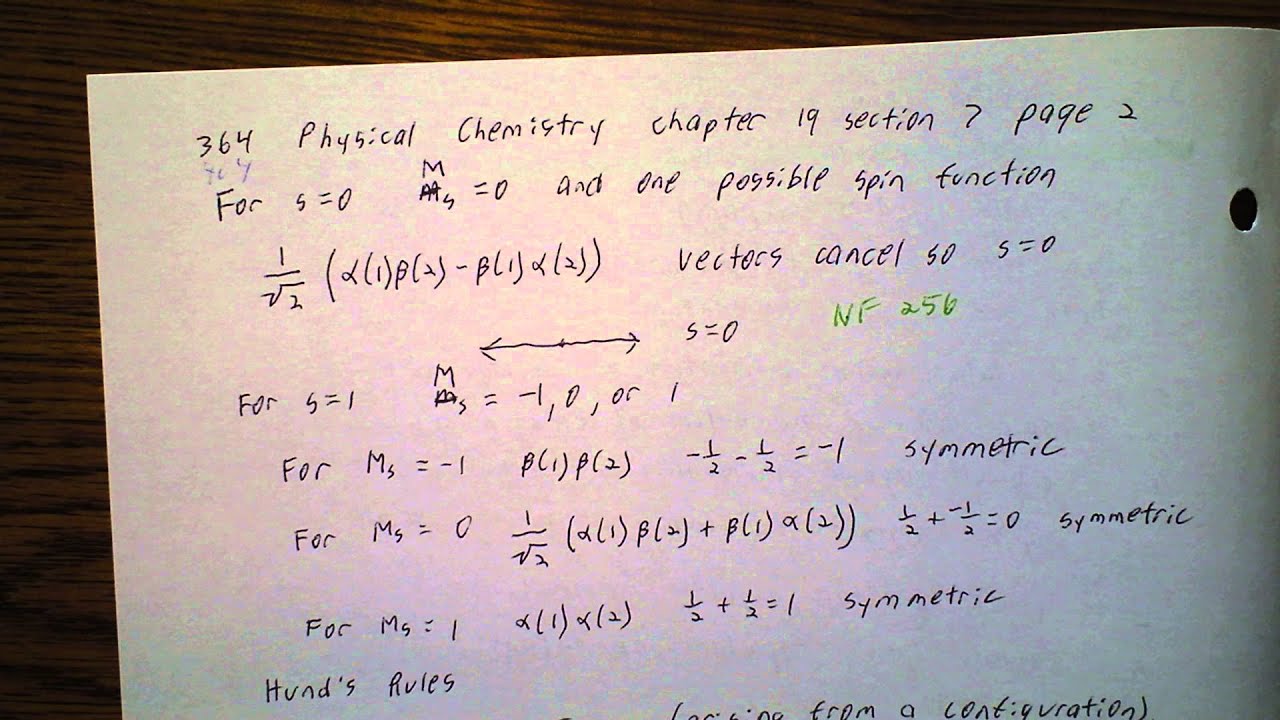 364 Physical Chemistry chapter 19 section 7 page 2
For s=0 M_s =0 and one possible spin function
1/√2 (α(1)β(2)-β(1)α(2)) vectors cancel so s=0
s=0 NF 256
For s=1 M_s = -1, 0, or 1
For M_s = -1 β(1)β(2) -1/2 - 1/2 = -1 symmetric
For M_s = 0 1/√2 (α(1)β(2)+β(1)α(2)) 1/2 + -1/2 = 0 symmetric
For M_s = 1 α(1)α(2) 1/2 + 1/2 = 1 symmetric
Hund's Rules
(arising from a configuration)